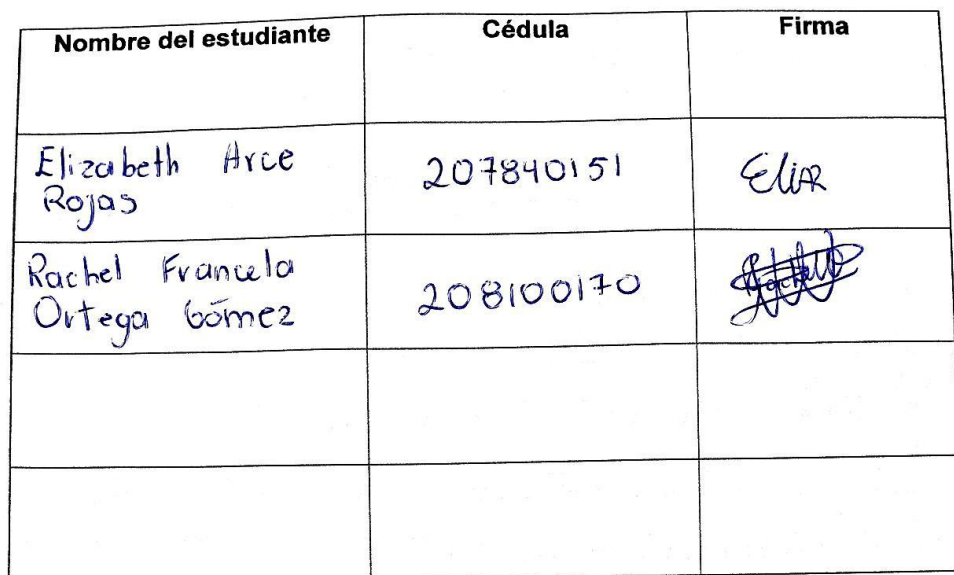 Nombre del estudiante Cédula Firma
Elizabeth Arce
Rojas
207840151
Rachel Francela
Ortega Gómez
208100170